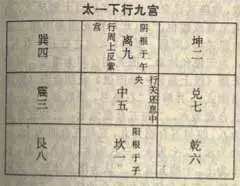 太一下行九宫
巽四
阴根于午
离九
行周上反紫
宫
坤二
震三
中五
行半还息中
央
兑七
艮八
阳根于子
坎一
乾六